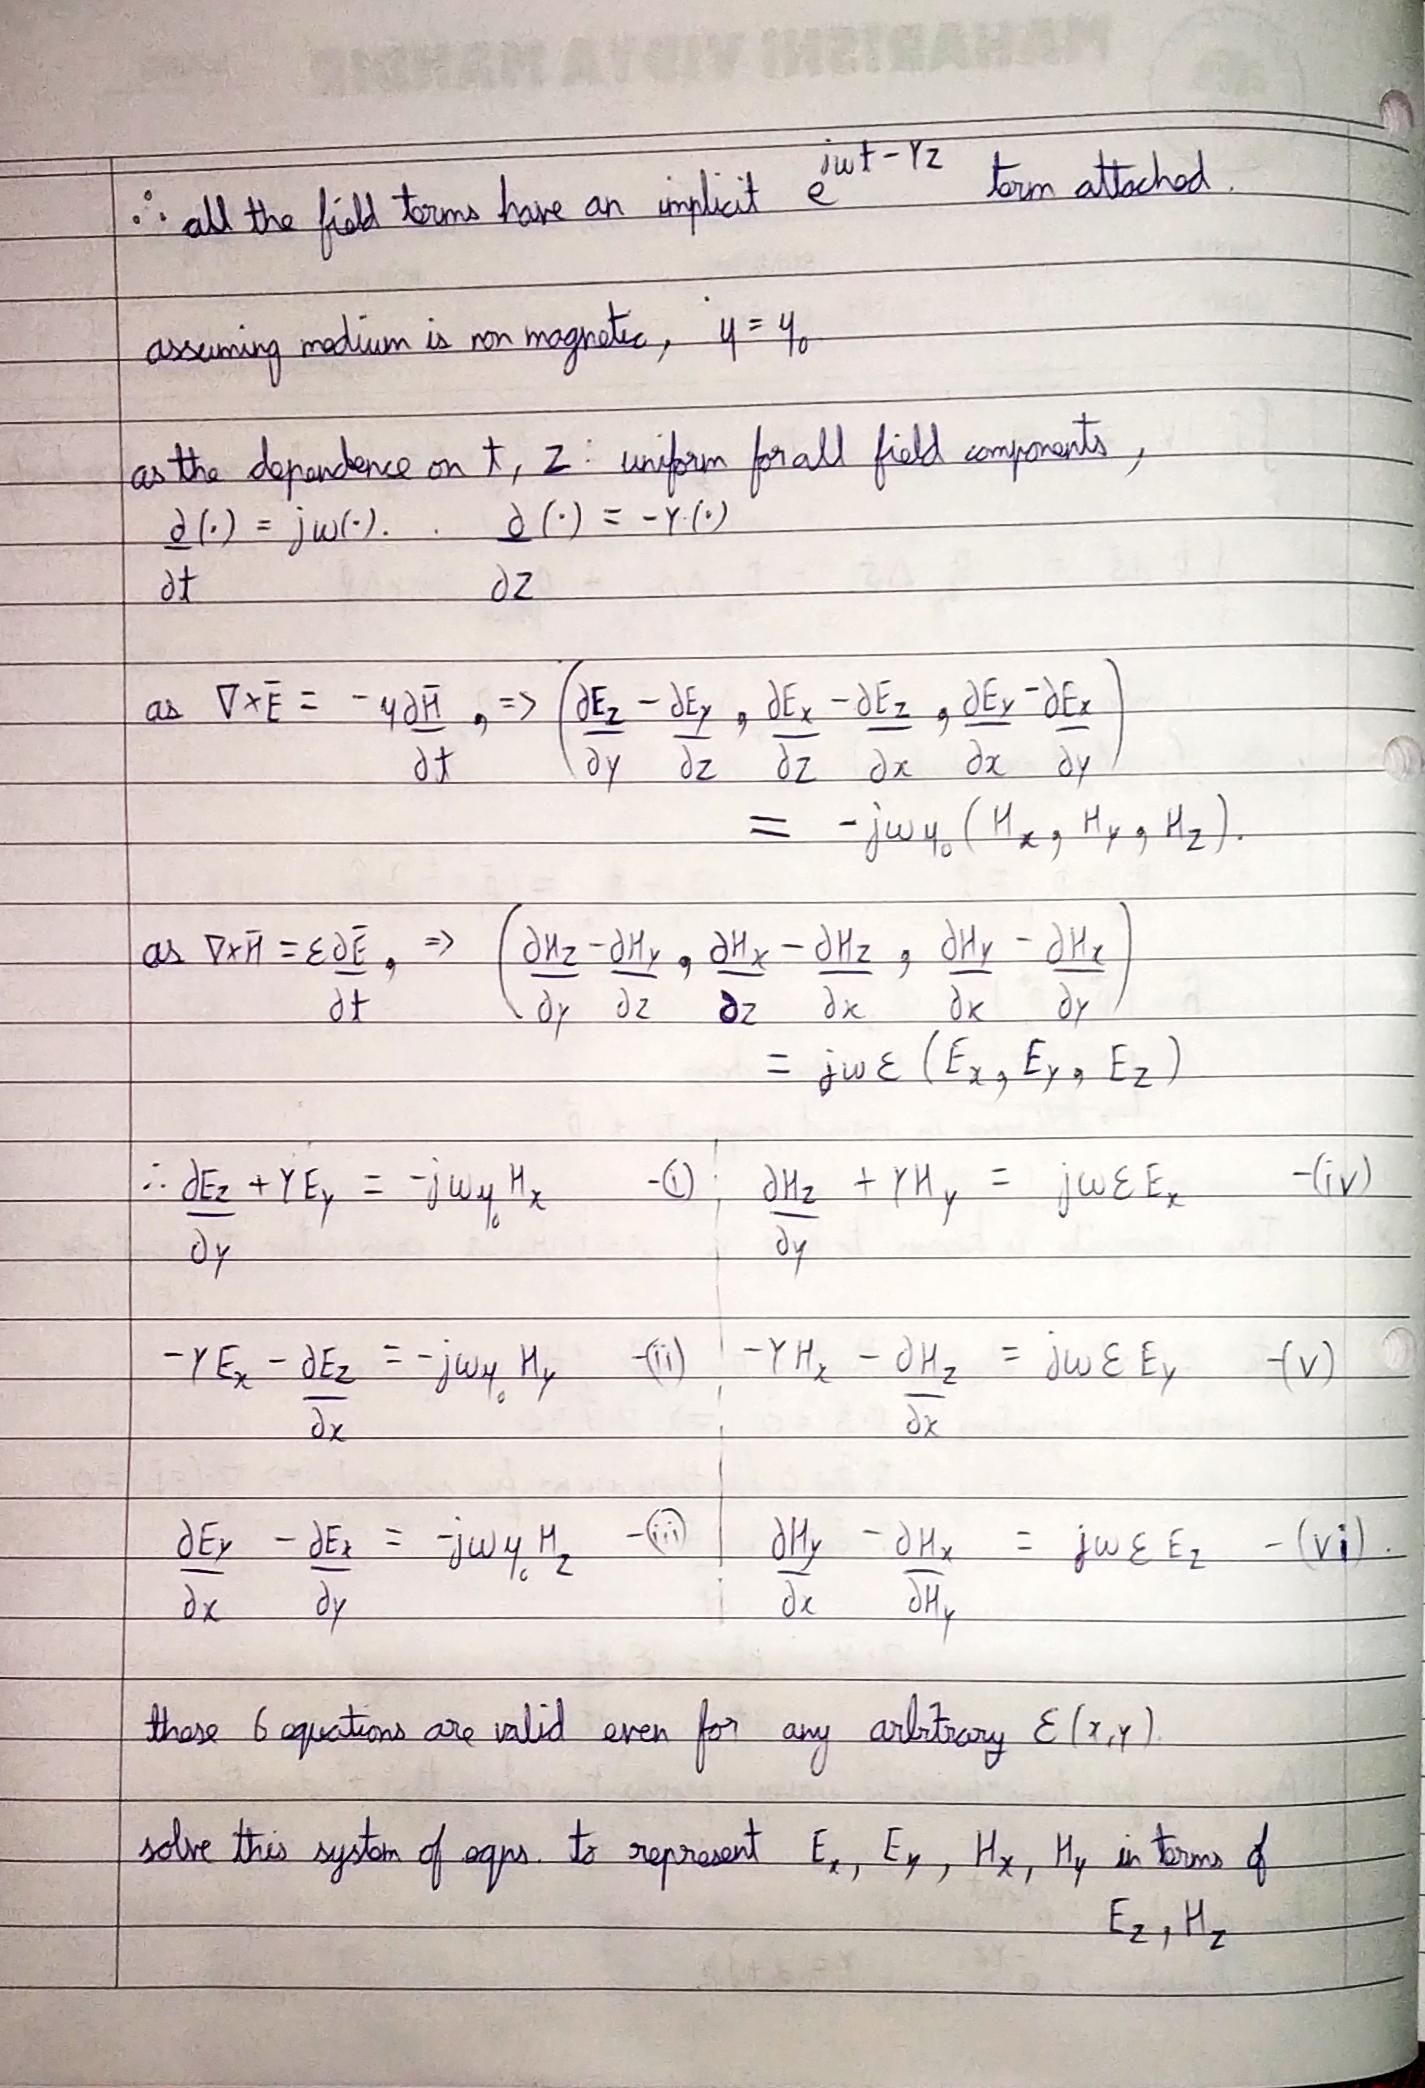 ∴ all the field terms have an implicit e^{jωt-γz} term attached.
assuming medium is non magnetic, μ = μ₀
as the dependence on t, z : uniform for all field components,
∂(·)/∂t = jω(·). ∂(·)/∂z = -γ·(·)
as ∇×Ē = -μ∂H̄/∂t, => (∂Ez/∂y - ∂Ey/∂z, ∂Ex/∂z - ∂Ez/∂x, ∂Ey/∂x - ∂Ex/∂y)
= -jωμ₀(Hx, Hy, Hz).
as ∇×H̄ = ε∂Ē/∂t, => (∂Hz/∂y - ∂Hy/∂z, ∂Hx/∂z - ∂Hz/∂x, ∂Hy/∂x - ∂Hx/∂y)
= jωε(Ex, Ey, Ez)
∴ ∂Ez/∂y + γEy = -jωμ₀Hx -(i) ∂Hz/∂y + γHy = jωεEx -(iv)
-γEx - ∂Ez/∂x = -jωμ₀Hy -(ii) -γHx - ∂Hz/∂x = jωεEy -(v)
∂Ey/∂x - ∂Ex/∂y = -jωμ₀Hz -(iii) ∂Hy/∂x - ∂Hx/∂Hy = jωεEz -(vi).
these 6 equations are valid even for any arbitrary ε(x,y).
solve this system of eqns. to represent Ex, Ey, Hx, Hy in terms of
Ez, Hz